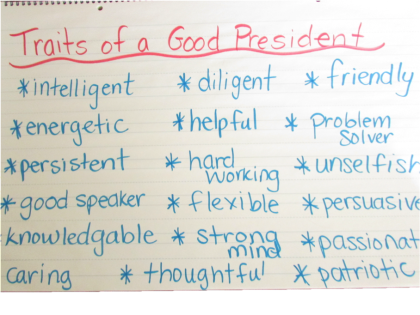 Traits of a Good President
*intelligent * diligent * friendly
*energetic * helpful * Problem Solver
*persistent * hard working * unselfish
* good speaker * flexible * persuasive
knowledgable * strong mind * passionat
caring * thoughtful * patriotic